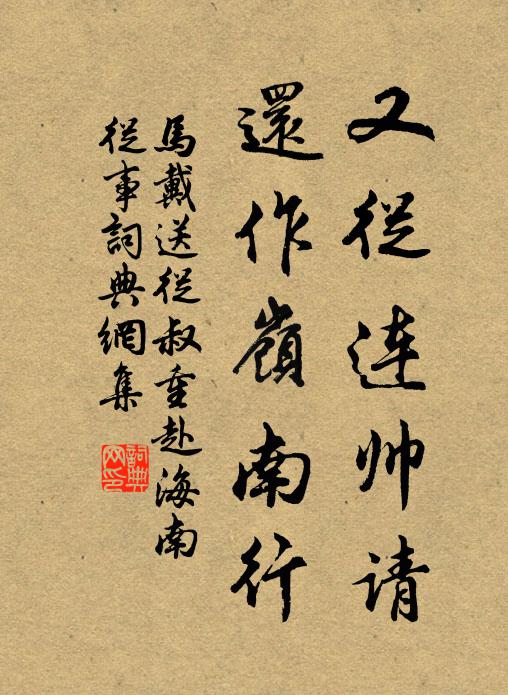 又從连帅请
還作嶺南行
馬戴送從叔重赴海南
從事詞典網集
詞典网印